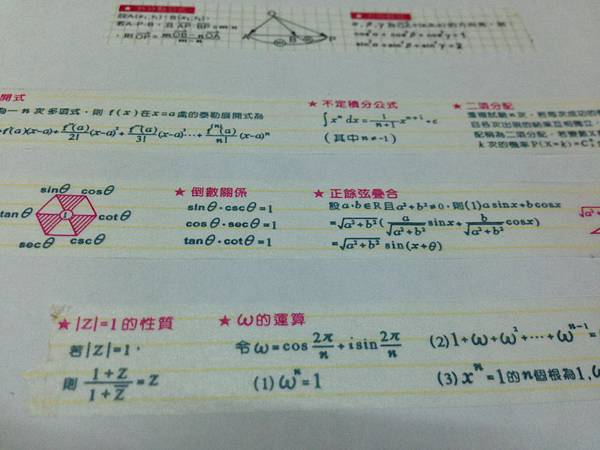 設A(x₁;y₁)，B(x₂;y₂)，
若A-P-B，且 AP : BP = m:n
A
B
P
cos²α + cos²β + cos²γ = 1
sin²α + sin²β + sin²γ = 2
開式
為一n次多項式，則 f(x) 在x=a處的泰勒展開式為
f'(a)(x-a) + f''(a)/2! (x-a)² + f'''(a)/3! (x-a)³ ⋯ + fⁿ(a)/n! (x-a)ⁿ
★ 不定積分公式
∫ xⁿ dx = 1/(n+1) xⁿ⁺¹ + c
(其中n≠-1)
★ 二項分配
重複試驗n次，若每次成功的
k次的機率P(X=k)=C
sinθ cosθ
tanθ 1 cotθ
secθ cscθ
★ 倒數關係
sinθ·cscθ=1
cosθ·secθ=1
tanθ·cotθ=1
★ 正餘弦疊合
設a·b∈R且a²+b²≠0，則(1)asinx+bcosx
=√(a²+b²) (a/√(a²+b²) sinx + b/√(a²+b²) cosx)
=√(a²+b²) sin(x+θ)
★ |Z|=1的性質
若|Z|=1，
則 (1+Z)/(1+Z̅) = Z
★ ω的運算
令ω=cos 2π/n + isin 2π/n
(1) ωⁿ=1
(2) 1+ω+ω²+⋯+ωⁿ⁻¹=
(3) xⁿ=1的n個根為1,ω